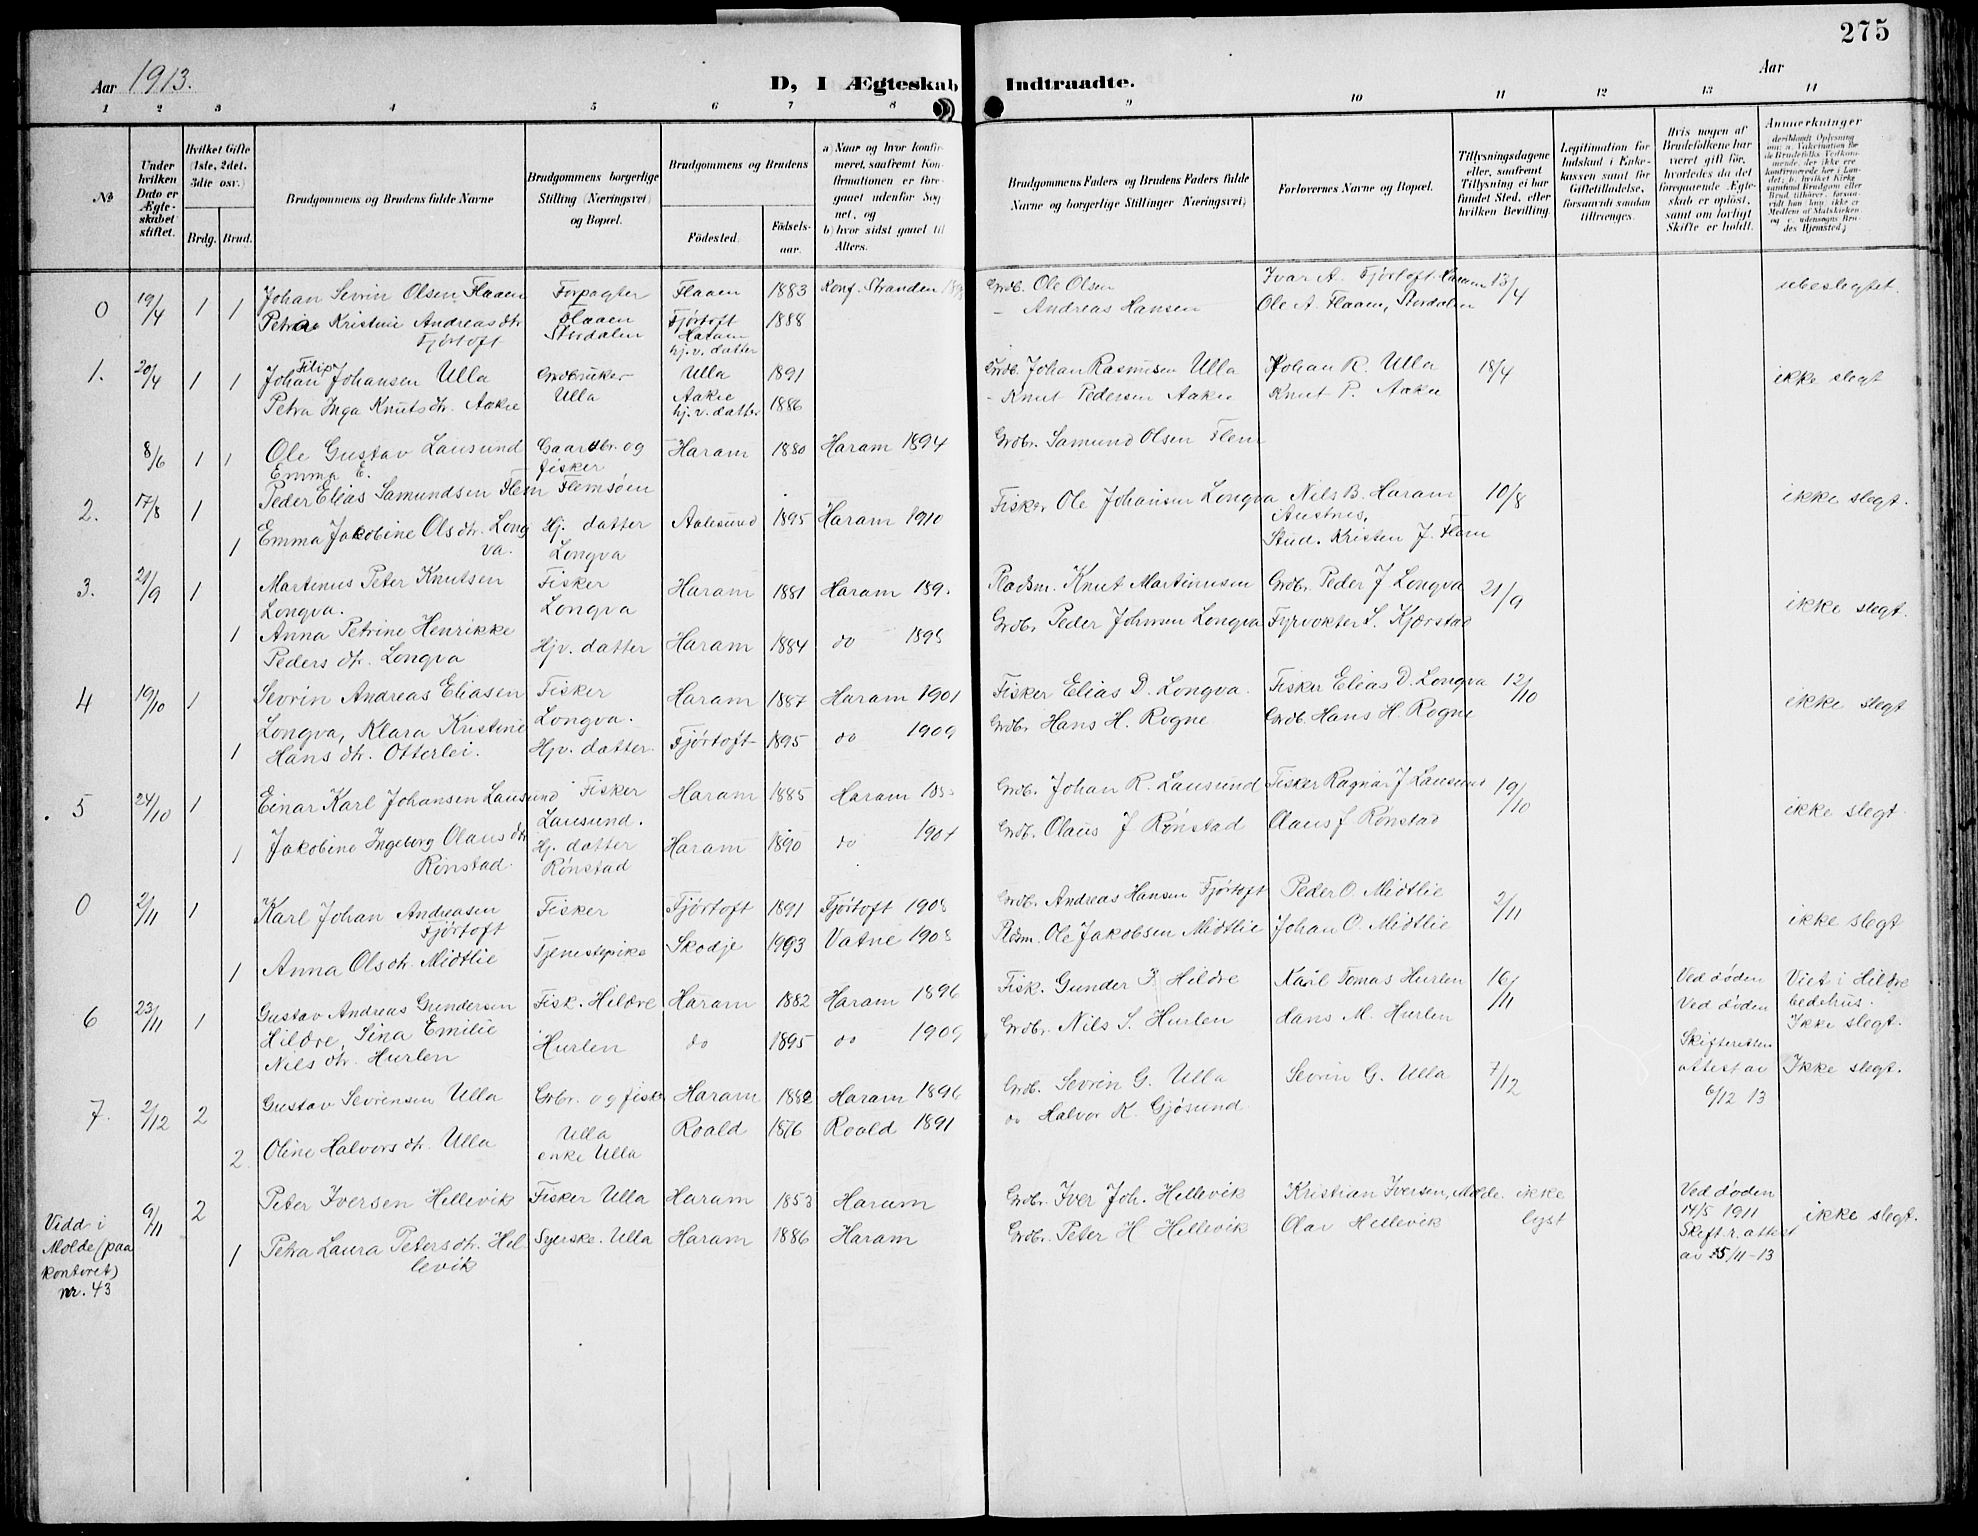 275
Aar 1913.
D, I Ægteskab Indtraadte.
Aar
1 2 3 4 5 6 7 8 9 10 11 12 13 14
No
Under hvilken Dato er Ægteskabet stiftet.
Hvilket Gifte (1ste, 2det, 3dte osv.)
Brdg. Brud.
Brudgommens og Brudens fulde Navne
Brudgommens borgerlige Stilling (Næringsvei) og Bopæl.
Brudgommens og Brudens
Fødested.
Fødsels-aar.
a) Naar og hvor konfirmeret, saafremt Konfirmationen er foregaaet udenfor Sognet, og
b) hvor sidst gaaet til Alters.
Brudgommens Faders og Brudens Faders fulde Navne og borgerlige Stillinger (Næringsvei)
Forlovernes Navne og Bopæl.
Tillysningsdagene eller, saafremt Tillysning ei har fundet Sted, efter hvilken Bevilling.
Legitimation for Indskud i Enkekassen samt for Giftetilladelse, forsaavidt saadan tiltrænges.
Hvis nogen af Brudefolkene har været gift før, hvorledes da det foregaaende Ægteskab er opløst, samt om lovligt Skifte er holdt.
Anmærkninger
0 19/4 1 1 Johan Sevrin Olsen Flaaen Forpagter Flaaen 1883 Konf. Stranden Grdb. Ole Olsen Ivar A. Fjørtoft Haram 13/4 ubeslegtet.
Petrine Kristine Andreasdtr. Flaaen Fjørtoft 1888 - Andreas Hansen Ole A. Flaaen, Stordalen
Fjørtoft Stordalen Haram
hj.v. datter
1. 20/4 1 1 Johan Filip Johansen Ulla Grdbruker Ulla 1891 Grdb. Johan Rasmusen Ulla Johan R. Ulla 18/4 ikke slegt
Petra Inga Knutsdtr. Aakre Ulla Aakre 1886 - Knut Pedersen Aakre Knut P. Aakre
hj.v. datter
8/6 1 1 Ole Gustav Lausund Gaardbr. og Haram 1880 Haram 1894 Grdbr. Samund Olsen Flem
Emma E. fisker
2. 17/8 1 Peder Elias Samundsen Flem Flemsøen Fisker Ole Johansen Longva Nils B. Haram 10/8 ikke slegt.
1 Emma Jakobine Olsdtr. Longva. Hj. datter Aalesund 1895 Haram 1910 Austnes,
Longva Stud. Kristen J. Flem
3. 21/9 1 Martinus Peter Knutsen Fisker Haram 1881 Haram Pladsm. Knut Martinusen Grdbr. Peder J Longva 21/9 ikke slegt.
Longva. Longva
1 Anna Petrine Henrikke Hjv. datter Haram 1884 do 1898 Grdbr. Peder Johnsen Longva Fyrvokter S. Kjærstad
Peders dtr. Longva
4 19/10 1 Sevrin Andreas Eliasen Fisker Haram 1887 Haram 1901 Fisker Elias D. Longva. Fisker Elias D. Longva 12/10 ikke slegt
Longva, Klara Kristine Longva.
1 Hans dtr. Otterlei. Hjv. datter. Fjørtoft 1895 do 1909 Grdbr. Hans H. Rogne Grdb. Hans H. Rogne
5 24/10 1 Einar Karl Johansen Lausund Fisker Haram 1885 Haram Grdb. Johan R. Lausund Fisker Ragnar J Lausund 19/10 ikke slegt
Lausund.
1 Jakobine Ingeborg Olausdtr. Hj. datter Haram 1890 do 1904 Grdb. Olaus J Rønstad Olaus J Rønstad
Rønstad. Rønstad
0 2/11 1 Karl Johan Andreasen Fisker Fjørtoft 1891 Fjørtoft 1908 Grdb. Andreas Hansen Fjørtoft Peder O. Midtlie 2/11 ikke slegt
Fjørtoft
1 Anna Olsdtr. Midtlie Tjenestepike Skodje 1993 Vatne 1908 Pldsm. Ole Jakobsen Midtlie Johan O. Midtlie
6 23/11 1 Gustav Andreas Gundersen Fisk. Hildre Haram 1882 Haram 1896 Fisk. Gunder Hildre Karl Tomas Hurlen 16/11 Ved døden Viet i Hildre
Hildre, Sina Emilie Hurlen do 1895 do 1909 Grdbr. Nils S. Hurlen Hans M. Hurlen Ved døden bedehus.
Nils dtr. Hurlen Ikke slegt.
7. 2/12 2 Gustav Sevrinsen Ulla Grbr. og fisker Haram 1882 Haram 1896 Grdb. Sevrin G. Ulla Sevrin G. Ulla 7/12 Skifteretten attest av 6/12 13 Ikke slegt.
2 Oline Halvorsdtr. Ulla Ulla Roald 1876 Roald 1891 do Halvor K. Gjøsund
enke Ulla
Vidd i Molde (paa kontoret) nr. 43 9/11 2 Peter Iversen Hellevik Fisker Ulla Haram 1853 Haram Grdbr. Iver Joh. Hellevik Kristian Iversen, Molde. ikke lyst Ved døden 14/5 1911 ikke slegt.
1 Petra Laura Petersdtr. Hellevik Syerske. Ulla Haram 1886 Haram Grdbr. Peter H Hellevik Olav Hellevik Skift.r. attest av 25/11-13